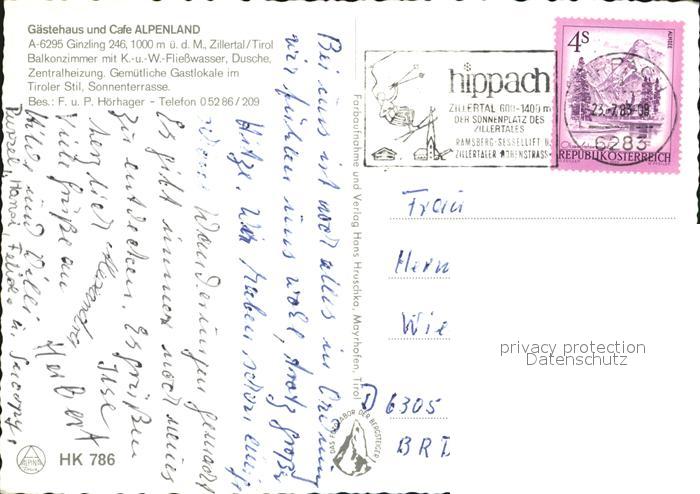 Gästehaus und Cafe ALPENLAND
A-6295 Ginzling 246, 1000 m ü. d. M., Zillertal/Tirol
Balkonzimmer mit K.-u.-W.-Fließwasser, Dusche,
Zentralheizung. Gemütliche Gastlokale im
Tiroler Stil, Sonnenterrasse.
Bes.: F. u. P. Hörhager - Telefon 0 52 86 / 209
hippach
ZILLERTAL 600-1400 m
DER SONNENPLATZ DES
ZILLERTALES
RAMSBERG-SESSELLIFT U.
ZILLERTALER HÖHENSTRASSE
4S
ALMSEE
23.-7.83-08
6283
REPUBLIK ÖSTERREICH
Bei uns ist noch alles in Ordnung
wir fühlen uns wohl, trotz großer
Hitze. Wir haben schon einige
Wanderungen gemacht
Es gibt immer noch neues
zu entdecken. Es grüßen
herzlich Ilse
Viele Grüße an Herbert
Hilde und Willi
Farbaufnahme und Verlag Hans Hruschka, Mayrhofen, Tirol
Frau
Herrn
Wie
D 6305
BRD
privacy protection
Datenschutz
DAS EDELLABOR DER BERGSTEIGER
ALPINA
HK 786